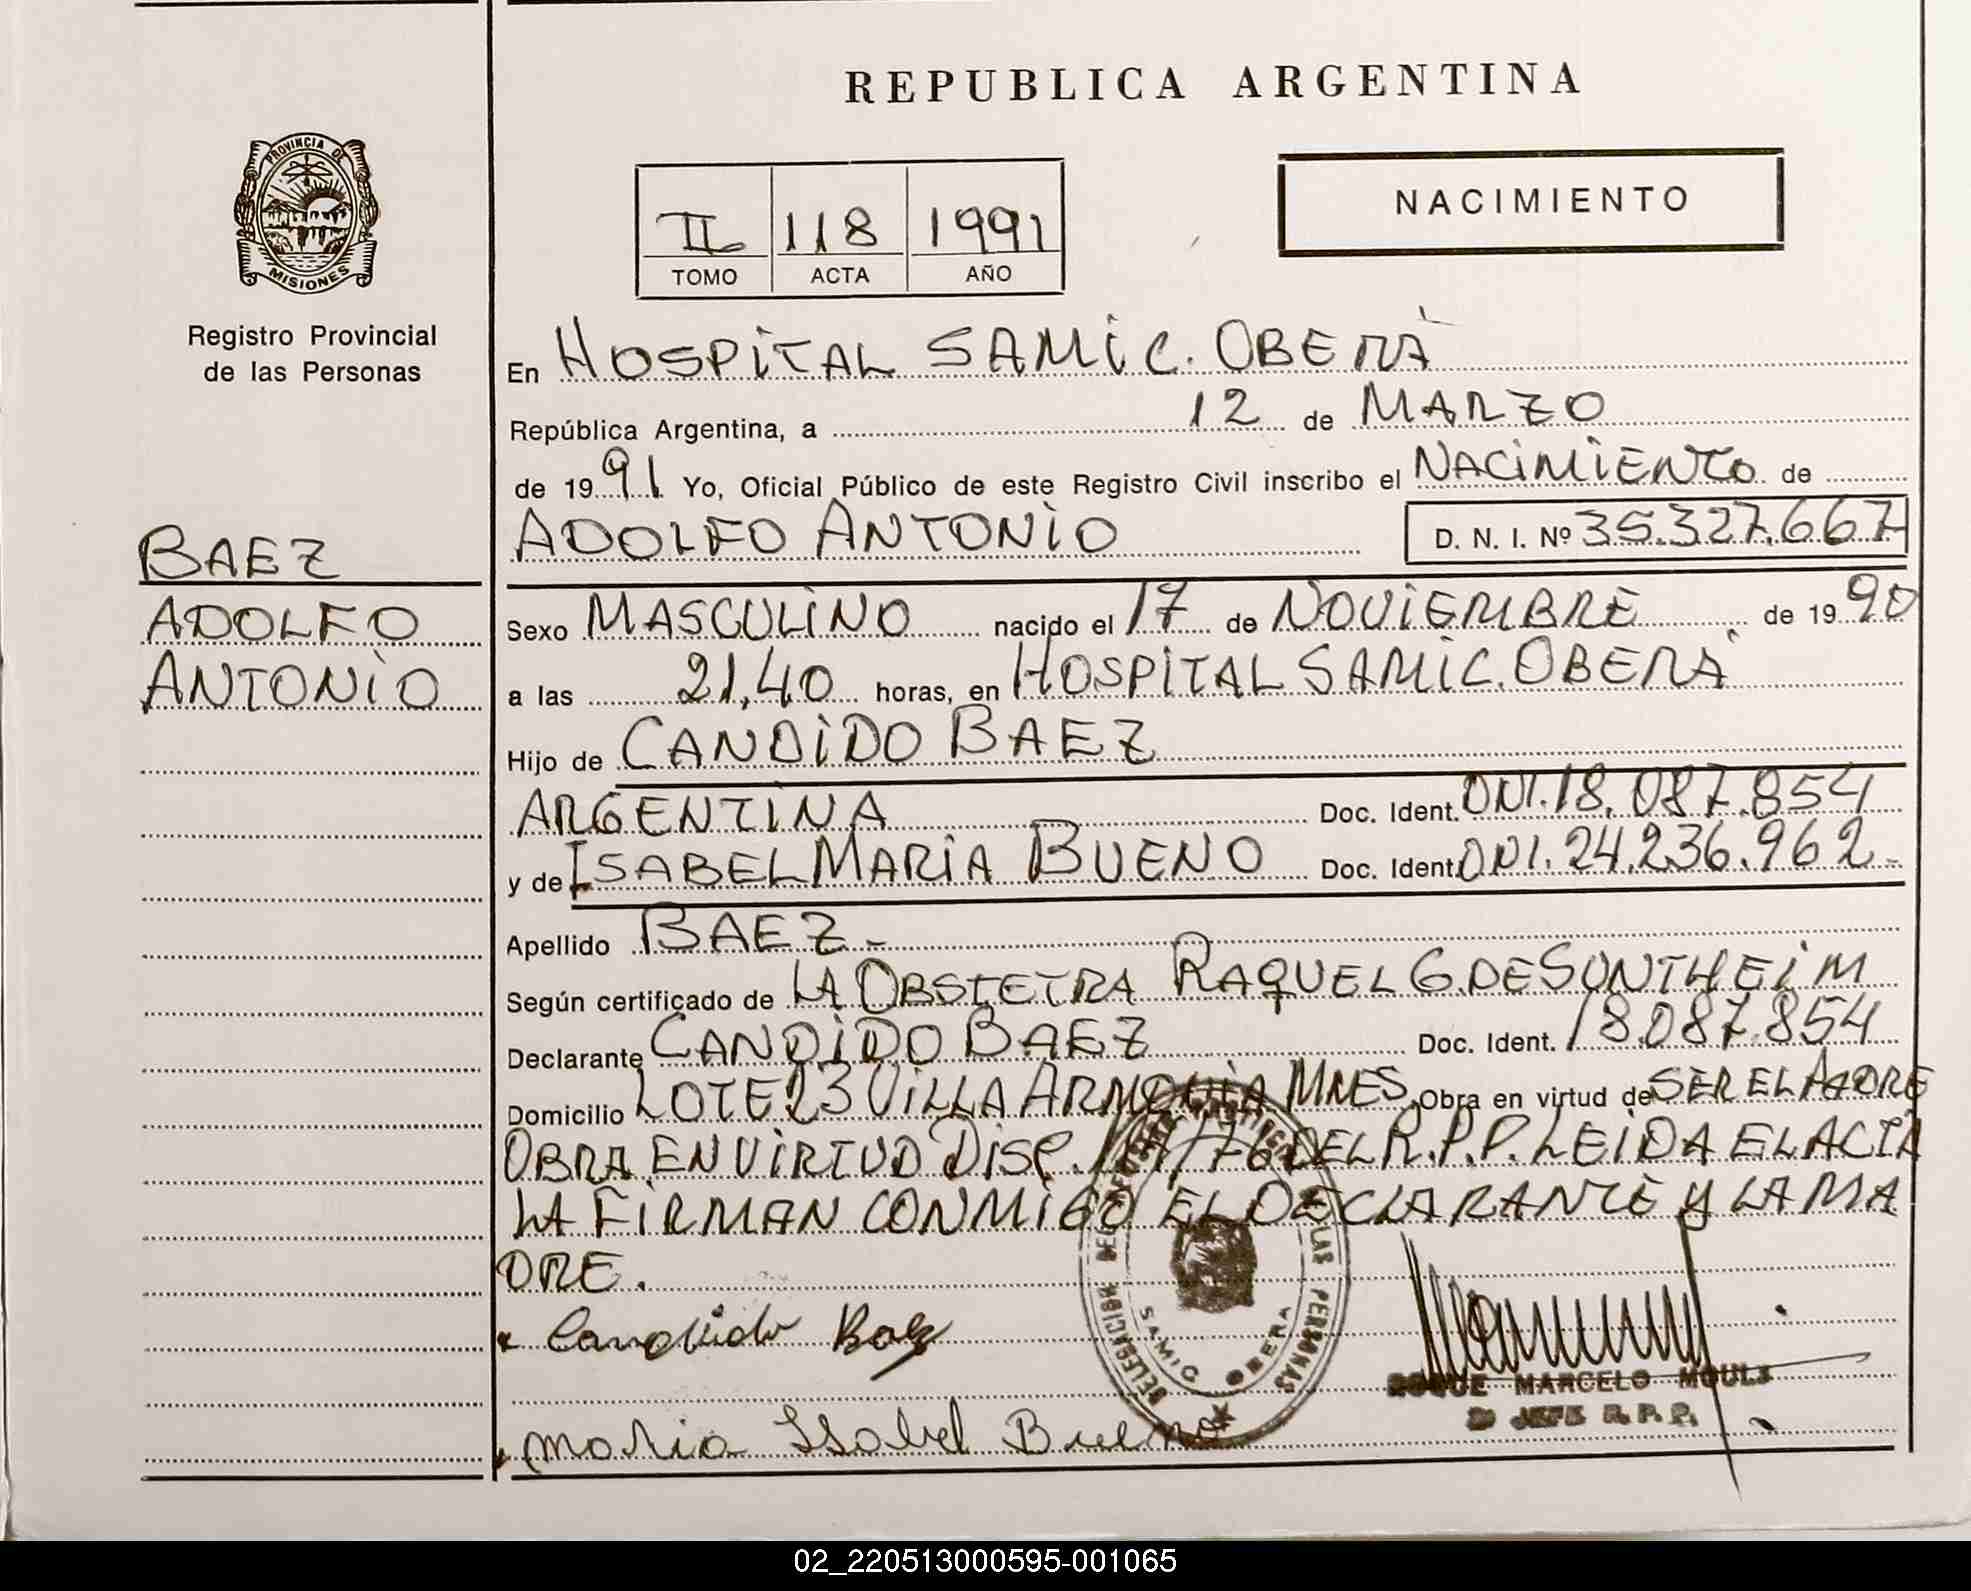 REPUBLICA ARGENTINA
PROVINCIA DE
MISIONES
Registro Provincial
de las Personas
II 118 1991
TOMO ACTA AÑO
NACIMIENTO
En HOSPITAL SAMIC. OBERÁ
República Argentina, a 12 de MARZO
de 1991 Yo, Oficial Público de este Registro Civil inscribo el NACIMIENTO de
ADOLFO ANTONIO D. N. I. Nº 35.327.667
BAEZ
ADOLFO
ANTONIO
Sexo MASCULINO nacido el 17 de NOVIEMBRE de 1990
a las 21,40 horas, en HOSPITAL SAMIC. OBERÁ
Hijo de CANDIDO BAEZ
ARGENTINA Doc. Ident. DNI. 18.087.854
y de ISABEL MARIA BUENO Doc. Ident. DNI. 24.236.962-
Apellido BAEZ-
Según certificado de LA OBSTETRA RAQUEL G. DE SONTHEIM
Declarante CANDIDO BAEZ Doc. Ident. 18.087.854
Domicilio LOTE 23 VILLA MNES. Obra en virtud de SER EL PADRE
OBRA EN VIRTUD DISP. /76 DEL R.P.P. LEIDA EL ACTA
LA FIRMAN CONMIGO EL DECLARANTE Y LA MA
DRE.
Candido Baez
Maria Isabel Bueno
DELEGACION DEL REGISTRO DE LAS PERSONAS
SAMIC OBERA
ROQUE MARCELO MOULS
JEFE R.P.P.
02_220513000595-001065